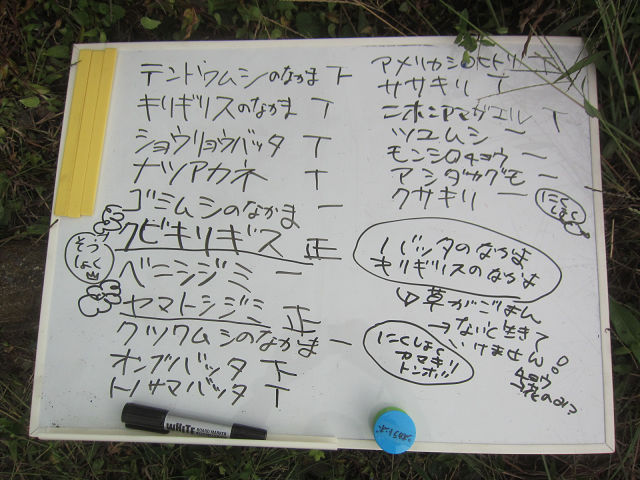 テントウムシのなかま 下
キリギリスのなかま T
ショウリョウバッタ T
ナツアカネ T
ゴミムシのなかま 一
クビキリギス 正
そうしょく
ベニシジミ 一
ヤマトシジミ 正
クツワムシのなかま 一
オンブバッタ 下
トノサマバッタ T
アメリカシロヒトリ T
ササキリ T
ニホンアマガエル T
ツユムシ 一
モンシロチョウ 一
アシダカグモ 一
クサキリ 一
にくしょく
バッタのなかま
キリギリスのなかま
草がごはん
→ないと生きて
いけません!
にくしょく
カマキリ
トンボ!!
チョウ
花のみつ
WHITE
BOARD MARKER